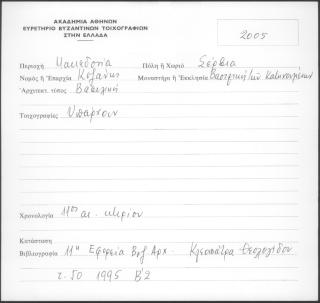 ΑΚΑΔΗΜΙΑ ΑΘΗΝΩΝ
ΕΥΡΕΤΗΡΙΟ ΒΥΖΑΝΤΙΝΩΝ ΤΟΙΧΟΓΡΑΦΙΩΝ
ΣΤΗΝ ΕΛΛΑΔΑ
2005
Περιοχή Μακεδονία Πόλη ἤ Χωριό Σέρβια
Νομός ἤ Ἐπαρχία Κοζάνης Μοναστήρι ἤ Ἐκκλησία Βασιλική των Κατηχουμένων
Ἀρχιτεκτ. τύπος Βασιλική
Τοιχογραφίες Υπάρχουν
Χρονολογία 11ος αι. κτιρίου
Κατάσταση
Βιβλιογραφία 11η Εφορεία Βυζ. Αρχ. Κλεοπάτρα Θεολογίδου
τ. 50 1995 Β'2